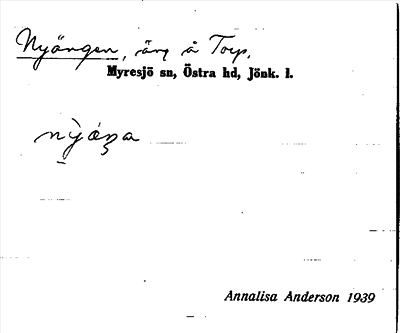 Nyängen, äng å Torp.
Myresjö sn, Östra hd, Jönk. l.
Annalisa Anderson 1939